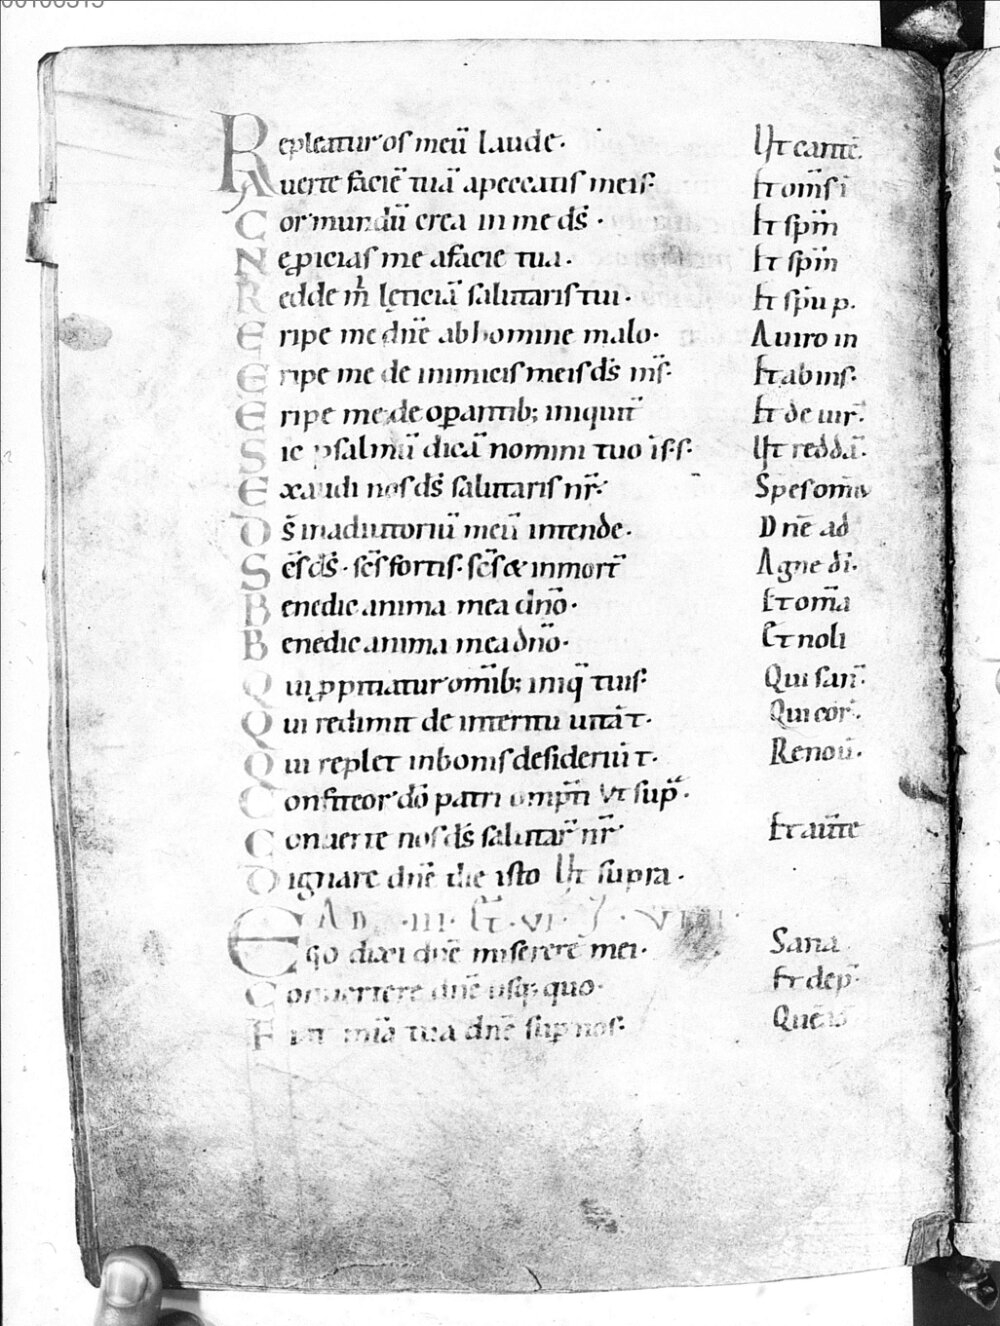 Repleatur os meū laude. Ut cantē.
Auerte faciē tuā a peccatis meis. Et om̄s i
Cor mundū crea in me ds̄. Et sp̄m
Ne ꝓicias me a facie tua. Et sp̄m
Redde m̄ lęticiā salutaris tui. Et sp̄u p.
Eripe me dn̄e ab homine malo. A uiro in
Eripe me de inimicis meis ds̄ ms̄. Et ab ins.
Eripe me de oꝑantib; iniquit̄ Et de uir̄.
Sic psalmū dicā nomini tuo ī s. s. Ut reddā.
Exaudi nos ds̄ salutaris nr̄. Spes omiū
Ds̄ in adiutoriū meū intende. Dn̄e ad
Sc̄s ds̄. sc̄s fortis. sc̄s & inmort̄ Agne di.
Benedic anima mea dn̄o. Et om̄a
Benedic anima mea dn̄o. Et noli
Qui ꝓpitiatur om̄ib; iniq̄ tuis. Qui san̄.
Qui redimit de interitu uitā t. Qui cor̄.
Qui replet in bonis desideriū t. Renoū.
Confiteor dō patri omp̄ti Ut sup̄.
Conuerte nos ds̄ salutar̄ nr̄ Et auͤte
Dignare dn̄e die isto Ut supra.
AD .III. ET .VI. 7 . VIIII.
Ego dixi dn̄e miserere mei. Sana
Conuertere dn̄e usq; quo. Et dep̄.
Fiat mīa tua dn̄e sup nos. Quēa